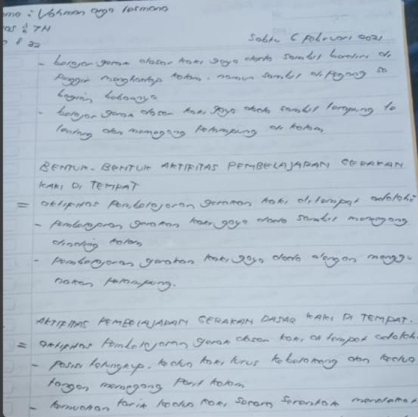 7H
Sabtu 6 Februari 2021
- belajar gerak dasar kaki gaya dada sambil berdiri di
kolam. namun sambil di pegang
- belajar gerak dasar kaki gaya dada sambil
dan memegang pelampung di kolam
BENTUK-BENTUK AKTIFITAS PEMBELAJARAN GERAKAN
KAKI DI TEMPAT
= aktifitas pembelajaran gerakan kaki di tempat adalah:
- pembelajaran gerakan kaki gaya dada sambil memegang
dinding kolam
- pembelajaran gerakan kaki gaya dada dengan menggu
nakan pelampung.
AKTIFITAS PEMBELAJARAN GERAKAN DASAR KAKI DI TEMPAT.
= aktifitas pembelajaran gerak dasar kaki di tempat adalah:
- posisi telungkup, kedua kaki lurus kebelakang dan kedua
tangan memegang parit kolam
- kemudian tarik kedua kaki secara serentak